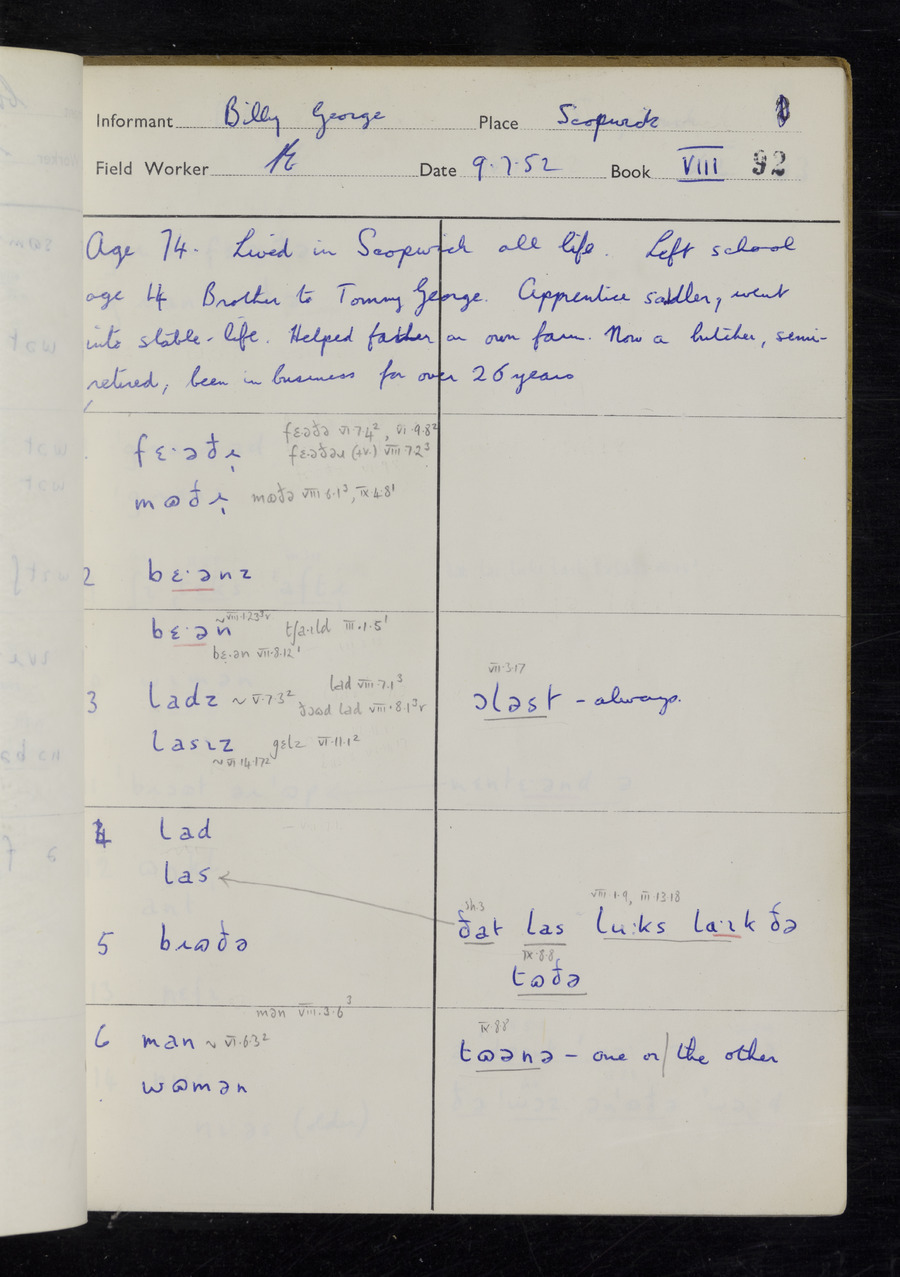 Informant Billy George Place Scopwick
Field Worker Date 9.7.52 Book VIII 92
Age 74. Lived in Scopwick all life. Left school
age 14 Brother to Tommy George. Apprentice saddler, went
into stable-life. Helped father on own farm. Now a butcher, semi-
retired, been in business for over 26 years
fɛ·əðɪ̣ fɛ·əðə VI·7·4², VI·9·8²
fɛ·əðəɹ (+v.) VIII·7·2³
mɷðɪ̣ mɷðə VIII·6·1³, IX·4·8¹
2 bɛ·ənz
bɛ·ən ~ VIII·1·23³r tʃa·ɪld III·1·5¹
bɛ·ən VII·8·12¹
3 ladz ~ V·7·3² lad VIII·7·1³
ðəɷd lad VIII·8·1³r
lasɪz gɛlz VI·11·1²
~ VI·14·17²
VII·3·17
ɔləst – always.
4 lad
las
5 bɹɷðə
sh.3 VIII·1·9, III·13·18
ðat las lu:ks la:ɪk ðə
IX·8·8
tɷðə
mən VIII·3·6³
6 man ~ VI·6·3²
wɷmən
IX·8·8
tɷənə – one or/the other